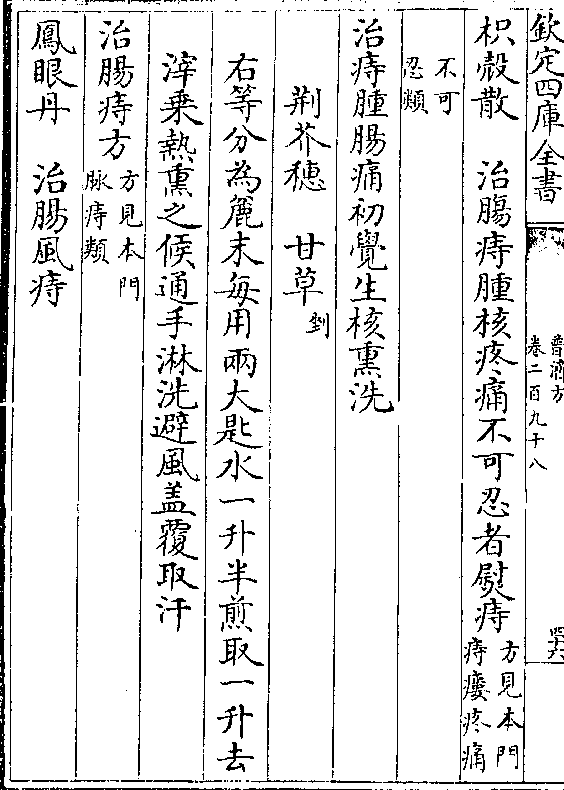 欽定四庫全書
普濟方
卷二百九十八
四十六
枳殻散　治腸痔腫核疼痛不可忍者熨痔方見本門痔瘻疼痛
不可忍類
治痔腫腸痛初覺生核熏洗
荆芥穗　甘草剉
右等分為麄末每用兩大匙水一升半煎取一升去
滓乗熱熏之候通手淋洗避風盖覆取汗
治腸痔方方見本門脉痔類
鳳眼丹　治腸風痔